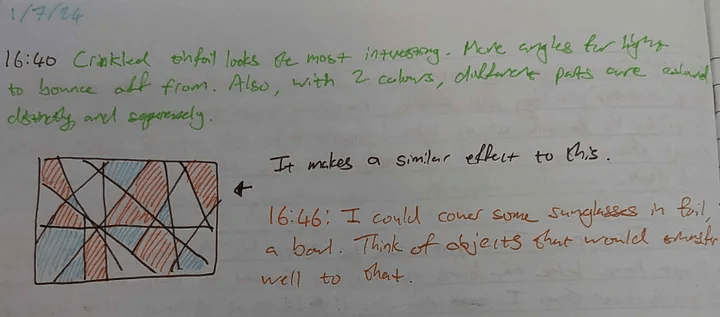 1/7/24
16:40 Crinkled tinfoil looks the most interesting. More angles for light
to bounce off from. Also, with 2 colours, different parts are colored
distinctly and separately.
It makes a similar effect to this.
16:46: I could cover some sunglasses in foil,
a bowl. Think of objects that would transfer
well to that.